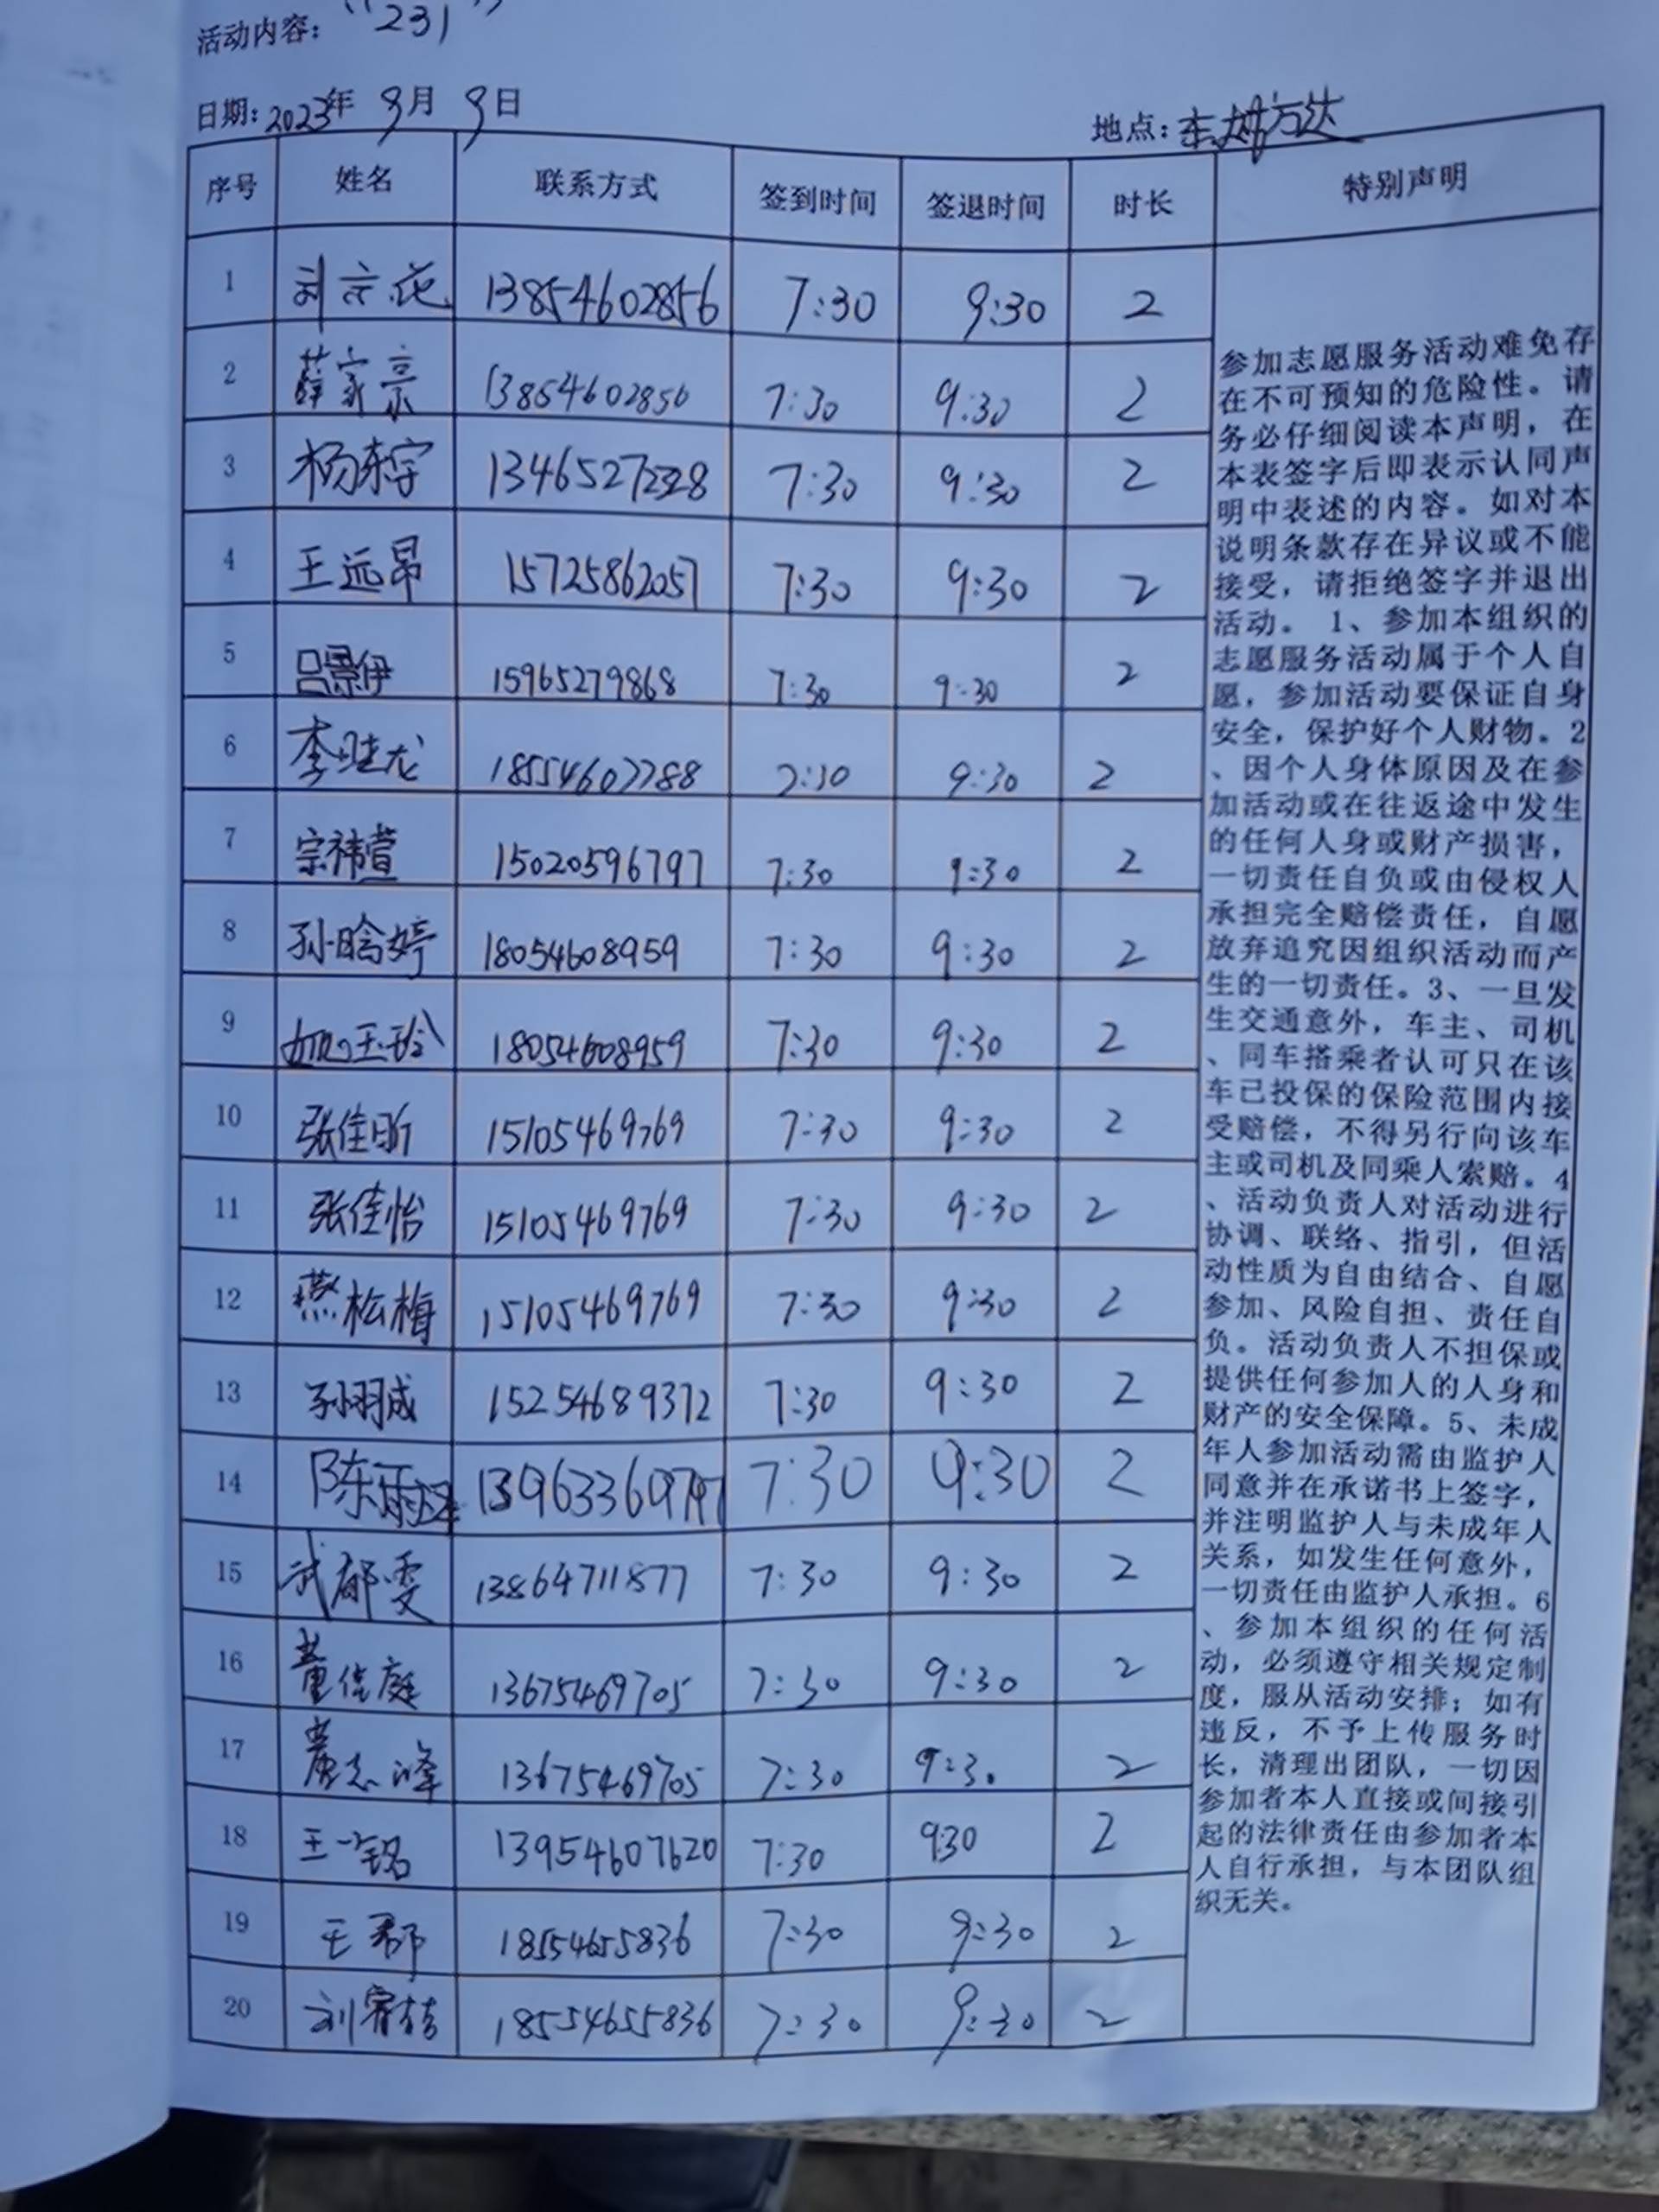 活动内容：“231”
日期：2023年 9月 9日
地点：东城万达
序号 姓名 联系方式 签到时间 签退时间 时长 特别声明
1 刘京花 13854602856 7:30 9:30 2
2 薛家宗 13854602856 7:30 9:30 2
3 杨东宇 7:30 9:30 2
4 王远昂 15725862057 7:30 9:30 2
5 吕景伊 15965279868 7:30 9:30 2
6 李 龙 18554607788 7:30 9:30 2
7 宗祎萱 15020596797 7:30 9:30 2
8 孙晗婷 18054608959 7:30 9:30 2
9 玉玲 18054608959 7:30 9:30 2
10 张佳昕 15105469769 7:30 9:30 2
11 张佳怡 15105469769 7:30 9:30 2
12 燕松梅 15105469769 7:30 9:30 2
13 孙羽成 15254689372 7:30 9:30 2
14 陈雨 7:30 9:30 2
15 武郁雯 13864711877 7:30 9:30 2
16 董佳庭 13675469705 7:30 9:30 2
17 董志峰 13675469705 7:30 9:30 2
18 王一铭 13954607620 7:30 9:30 2
19 王郡 18554655836 7:30 9:30 2
20 刘睿喆 18554655836 7:30 9:30 2
参加志愿服务活动难免存
在不可预知的危险性。请
务必仔细阅读本声明，在
本表签字后即表示认同声
明中表述的内容。如对本
说明条款存在异议或不能
接受，请拒绝签字并退出
活动。 1、参加本组织的
志愿服务活动属于个人自
愿，参加活动要保证自身
安全，保护好个人财物。2
、因个人身体原因及在参
加活动或在往返途中发生
的任何人身或财产损害，
一切责任自负或由侵权人
承担完全赔偿责任，自愿
放弃追究因组织活动而产
生的一切责任。3、一旦发
生交通意外，车主、司机
、同车搭乘者认可只在该
车已投保的保险范围内接
受赔偿，不得另行向该车
主或司机及同乘人索赔。4
、活动负责人对活动进行
协调、联络、指引，但活
动性质为自由结合、自愿
参加、风险自担、责任自
负。活动负责人不担保或
提供任何参加人的人身和
财产的安全保障。5、未成
年人参加活动需由监护人
同意并在承诺书上签字，
并注明监护人与未成年人
关系，如发生任何意外，
一切责任由监护人承担。6
、参加本组织的任何活
动，必须遵守相关规定制
度，服从活动安排；如有
违反，不予上传服务时
长，清理出团队，一切因
参加者本人直接或间接引
起的法律责任由参加者本
人自行承担，与本团队组
织无关。